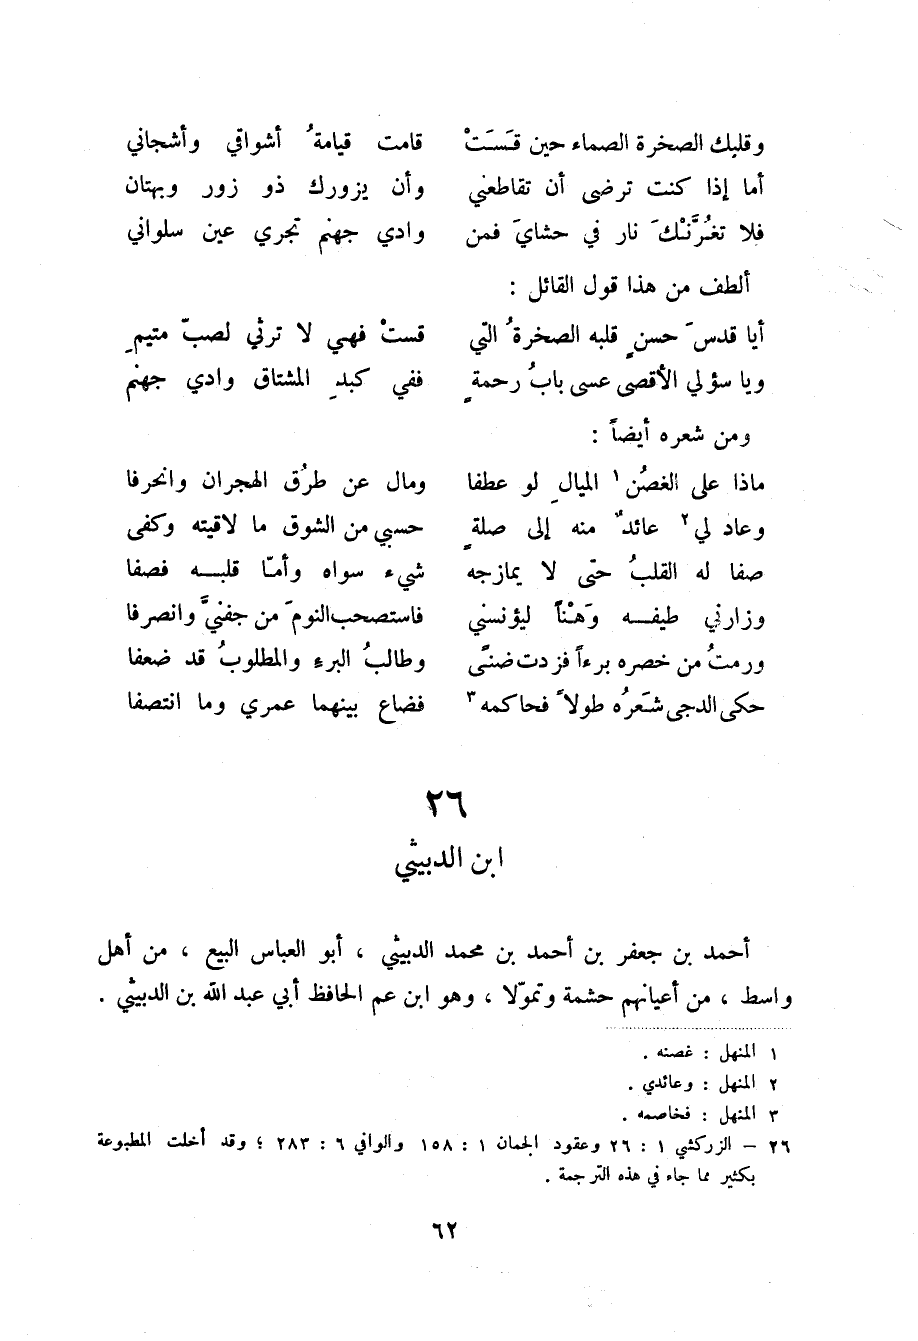 وقلبك الصخرة الصماء حين قَسَتْ قامت قيامةُ أشواقي وأشجاني
أما إذا كنت ترضى أن تقاطعني وأن يزورك ذو زور وبهتان
فلا تغُرَّنْكَ نار في حشايَ فمن وادي جهنم تجري عين سلواني
ألطف من هذا قول القائل :
أيا قدسَ حسنٍ قلبه الصخرةُ التي قستْ فهي لا ترثي لصبّ متيمِ
ويا سؤلي الأقصى عسى بابُ رحمةٍ ففي كبدِ المشتاق وادي جهنم
ومن شعره أيضاً :
ماذا على الغصُن ١ الميالِ لو عطفا ومال عن طرُق الهجران وانحرفا
وعاد لي ٢ عائدٌ منه إلى صلةٍ حسبي من الشوق ما لاقيته وكفى
صفا له القلبُ حتى لا يمازجه شيء سواه وأمّا قلبـه فصفا
وزارني طيفـه وَهْناً ليؤنسني فاستصحب النومَ من جفنيَّ وانصرفا
ورمتُ من خصره برءاً فزدت ضنًى وطالبُ البرء والمطلوبُ قد ضعفا
حكى الدجى شَعرُه طولاً فحاكمه ٣ فضاع بينهما عمري وما انتصفا
٢٦
ابن الدبيثي
أحمد بن جعفر بن أحمد بن محمد الدبيثي ، أبو العباس البيع ، من أهل
واسط ، من أعيانهم حشمة وتموّلا ، وهو ابن عم الحافظ أبي عبد الله بن الدبيثي .
١ المنهل : غصنه .
٢ المنهل : وعائدي .
٣ المنهل : فخاصمه .
٢٦ – الزركشي ١ : ٢٦ وعقود الجمان ١ : ١٥٨ والوافي ٦ : ٢٨٣ ؛ وقد أخلت المطبوعة
بكثير مما جاء في هذه الترجمة .
٦٢